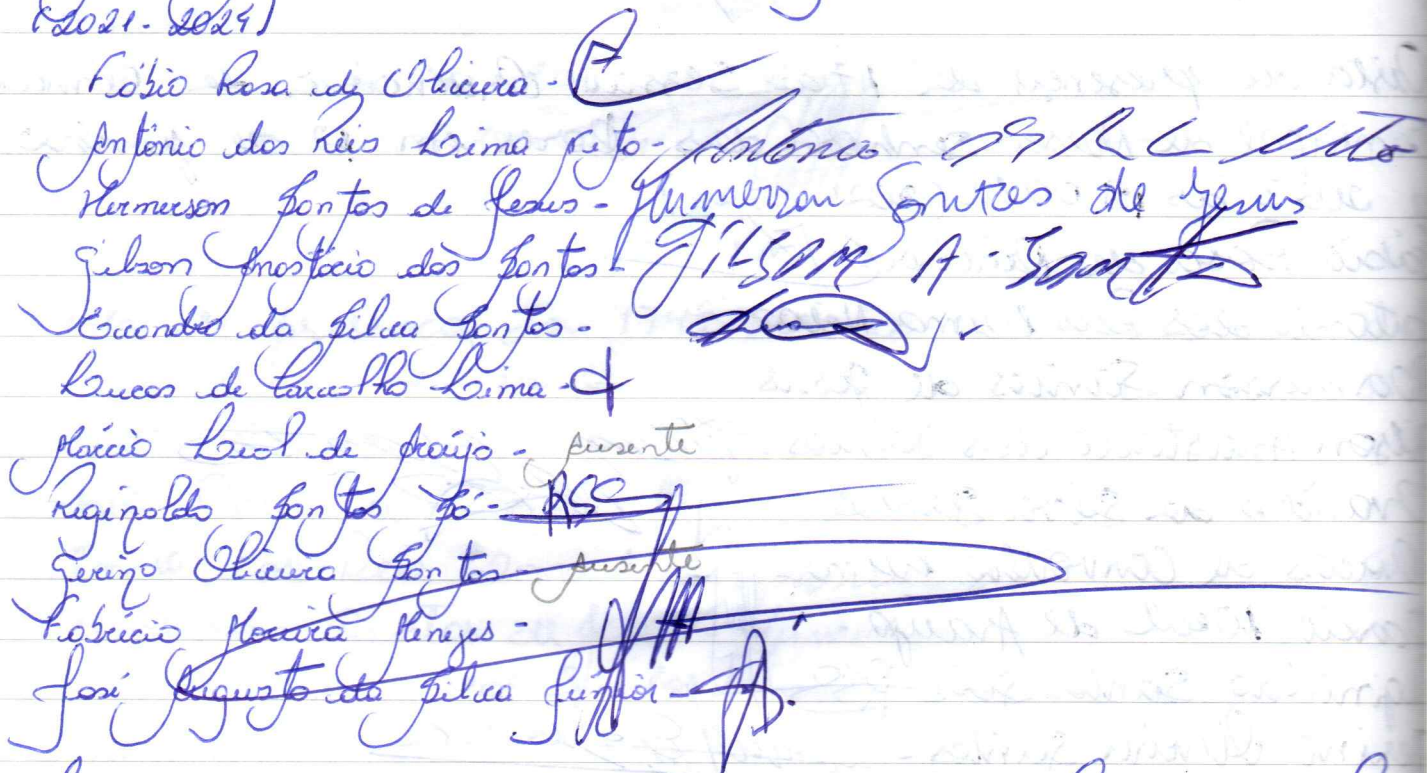 (2021-2024)
Fábio Rosa de Oliveira -
Antônio dos Reis Lima Neto - Antônio DS R L Neto
Hermerson Santos de Jesus - Humerson Santos de Jesus
Gilson Anastácio dos Santos - GILSON A. Santos
Evandro da Silva Santos -
Lucas de Carvalho Lima -
Márcio Leal de Araújo - Ausente
Reginaldo Santos Só - RSS
Gerino Oliveira Santos - Ausente
Fabrício Moreira Menezes -
José Augusto da Silva Júnior -